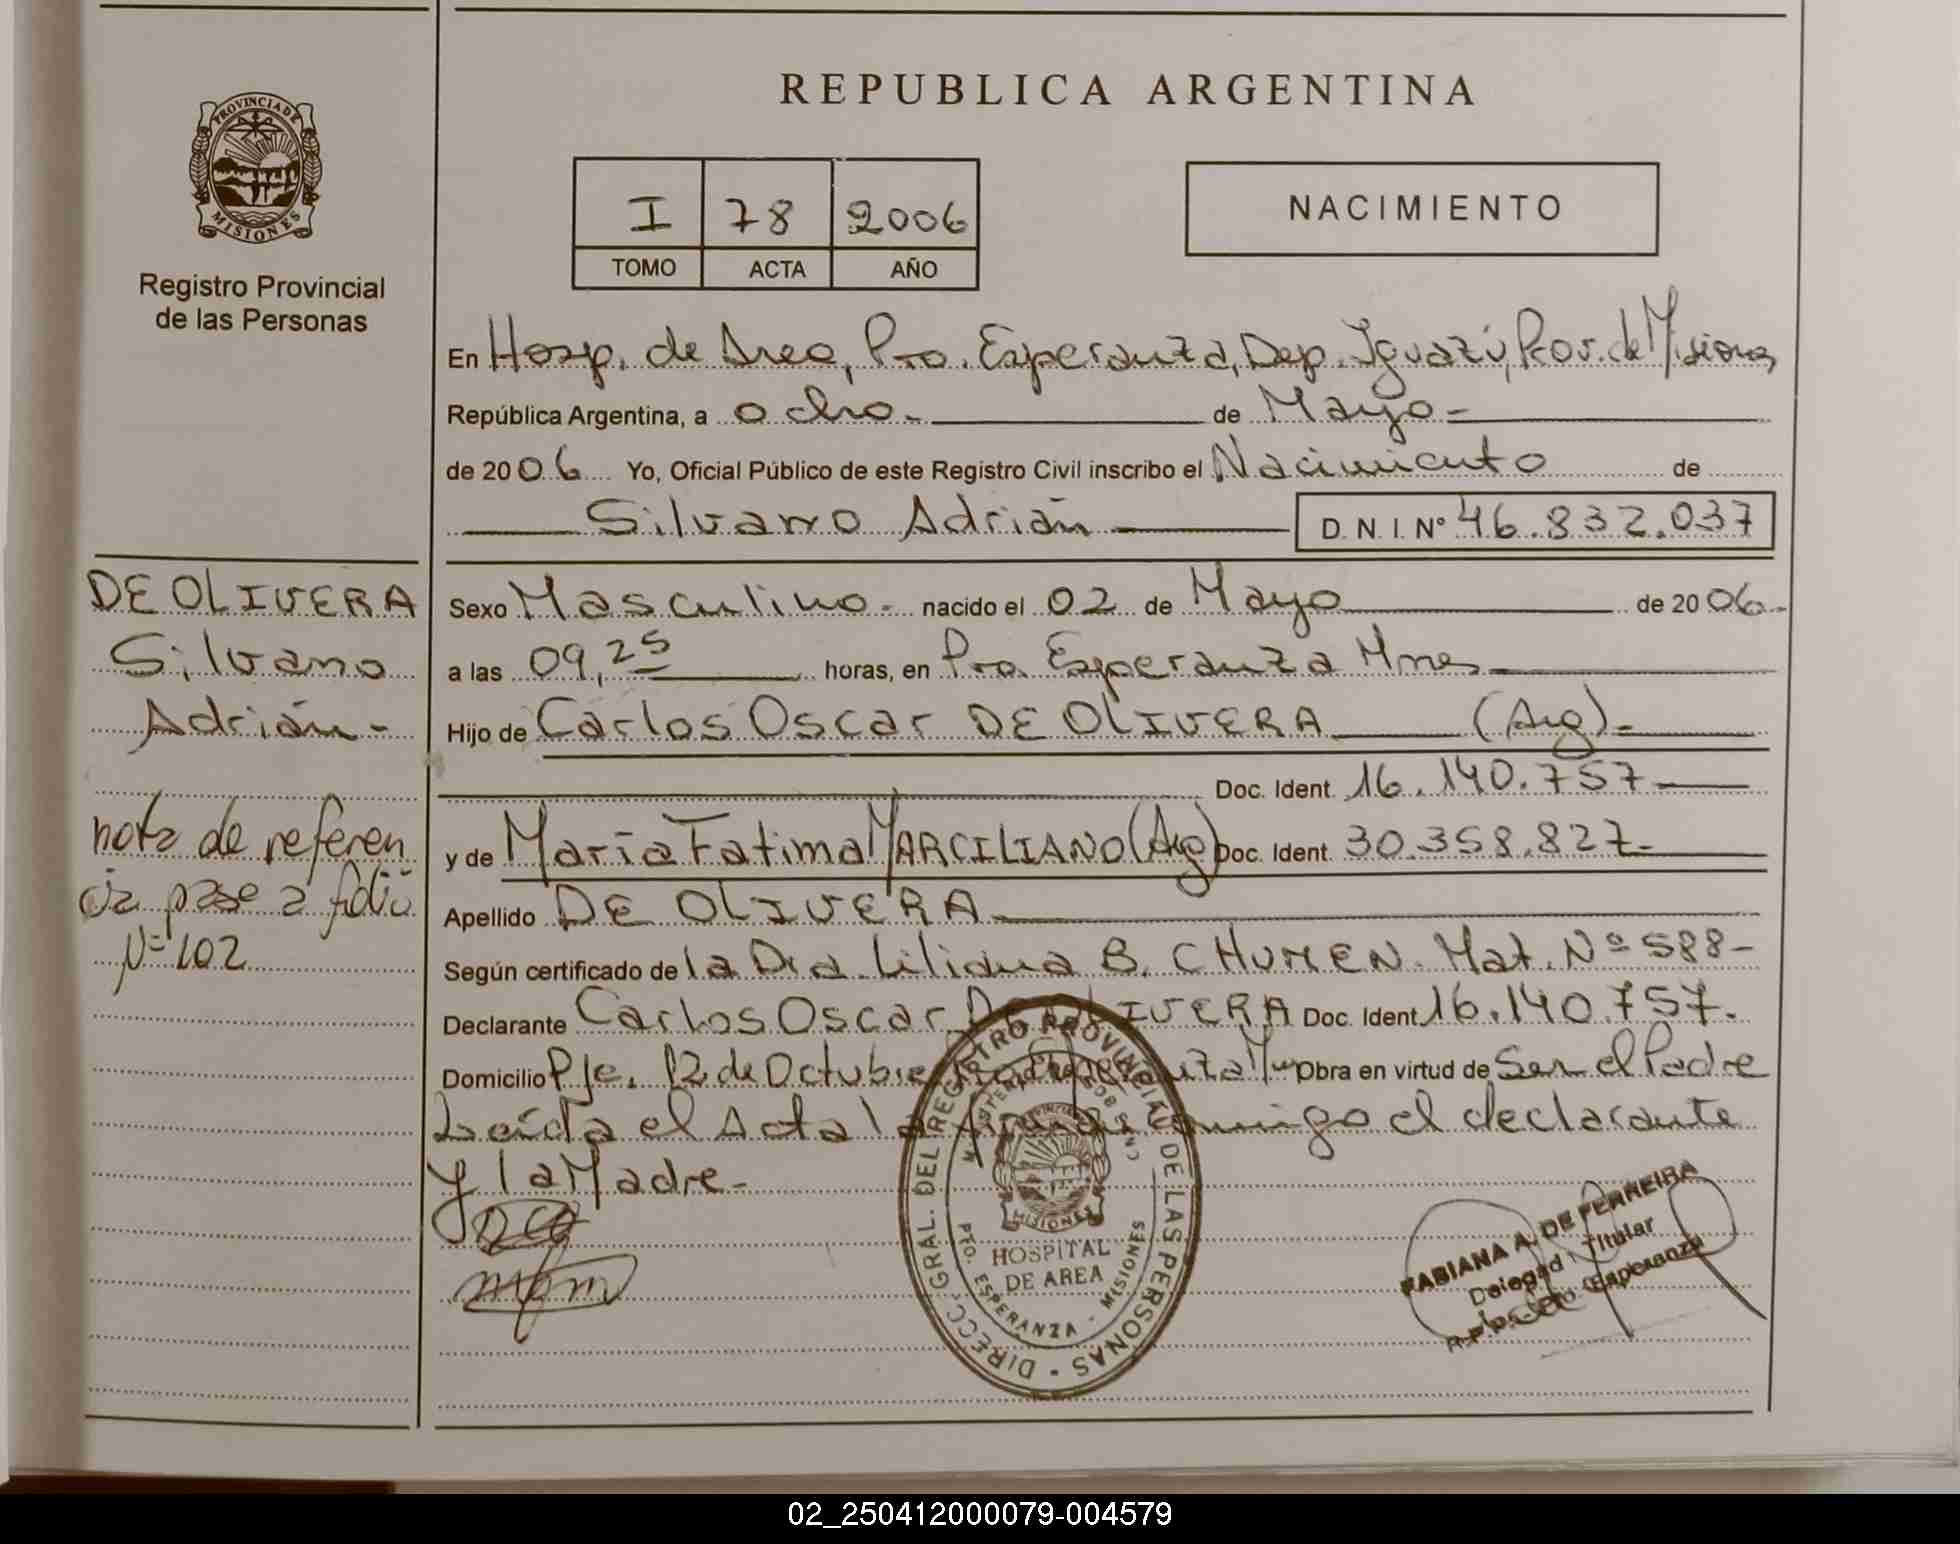 REPUBLICA ARGENTINA
PROVINCIA DE MISIONES
Registro Provincial
de las Personas
I 78 2006
TOMO ACTA AÑO
NACIMIENTO
En Hosp. de Area, Pto. Esperanza, Dep. Iguazú, Prov. de Misiones,
República Argentina, a ocho.- de Mayo-
de 2006 Yo, Oficial Público de este Registro Civil inscribo el Nacimiento de
Silvano Adrián D. N. I. Nº 46.832.037
DE OLIVERA
Silvano
Adrián-
nota de referen
cia pase a folio
Nº 102
Sexo Masculino.- nacido el 02 de Mayo de 2006.-
a las 09,25 horas, en Pto. Esperanza Mnes
Hijo de Carlos Oscar DE OLIVERA (Arg)-
Doc. Ident. 16.140.757
y de María Fatima MARCILIANO (Arg) Doc. Ident. 30.358.827-
Apellido DE OLIVERA
Según certificado de la Dra. Liliana B. CHUMEN. Mat. Nº 588-
Declarante Carlos Oscar DE OLIVERA Doc. Ident 16.140.757.
Domicilio Pje. 12 de Octubre Obra en virtud de Ser el Padre
Leída el Acta la firman conmigo el declarante
y la Madre.-
DIRECC. GRAL. DEL REGISTRO PROVINCIAL DE LAS PERSONAS
MISIONES
HOSPITAL
DE AREA
PTO. ESPERANZA - MISIONES
FABIANA A. DE FERREIRA
Delegad Titular
R.P.P. Pto. Esperanza
02_250412000079-004579